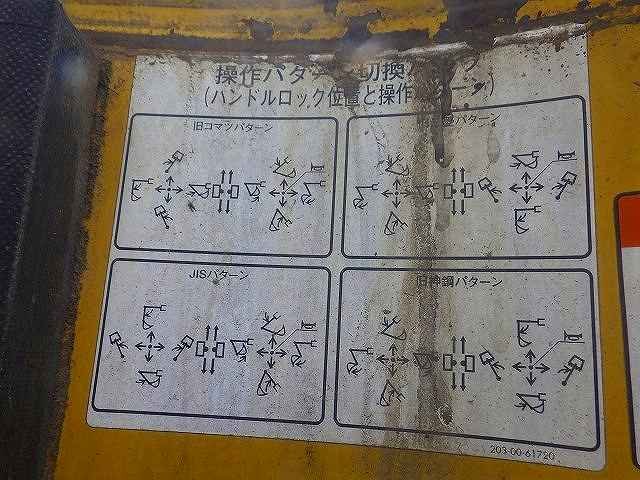 操作パターン切換
(ハンドルロック位置と操作パターン)
旧コマツパターン
パターン
JISパターン
旧神鋼パターン
203-00-61720